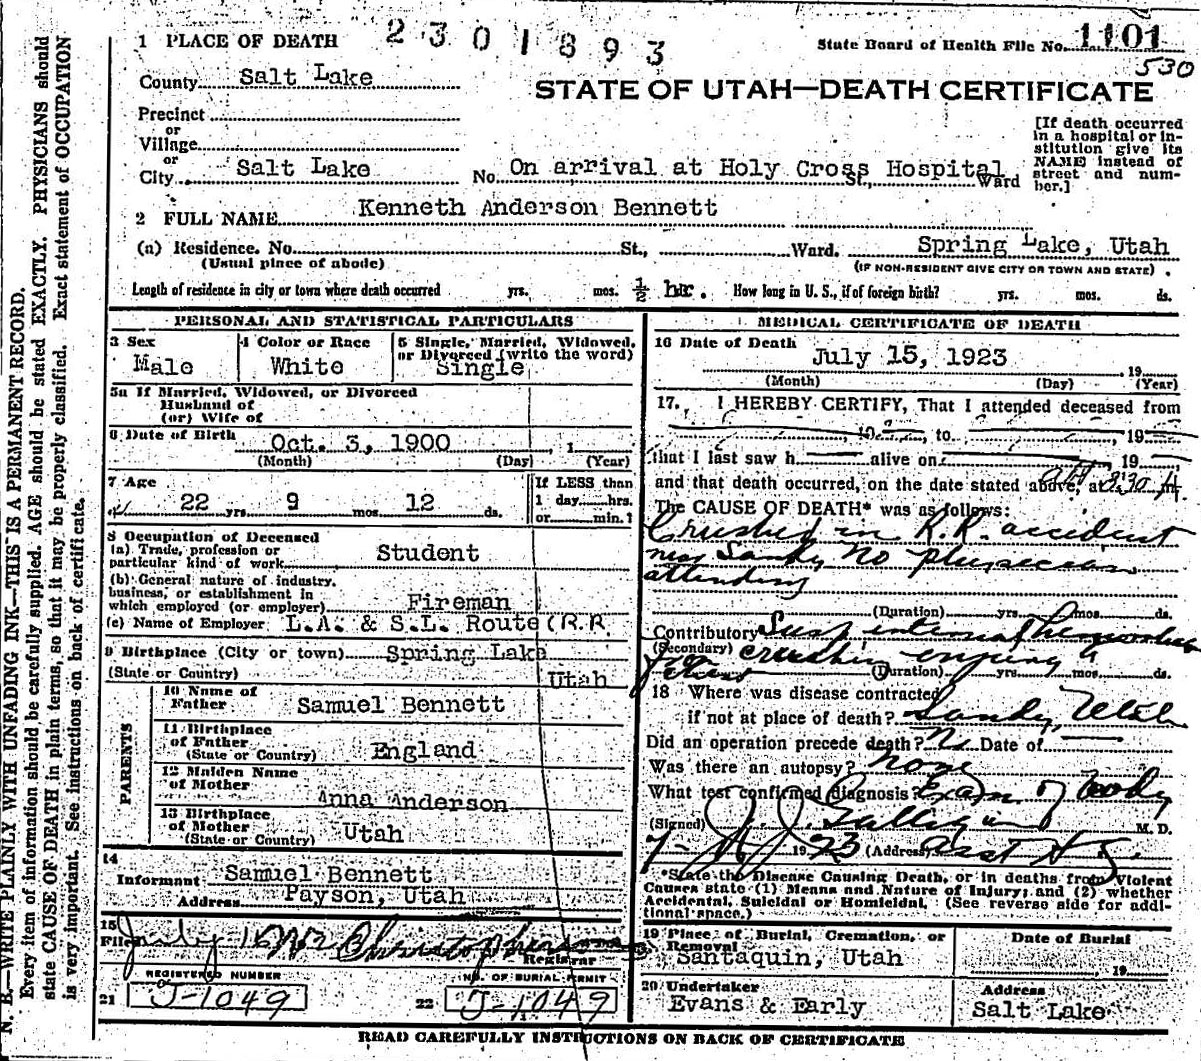 2301893
State Board of Health File No. 1101
530
1 PLACE OF DEATH
County Salt Lake
STATE OF UTAH—DEATH CERTIFICATE
Precinct
or
Village
or
City Salt Lake No. On arrival at Holy Cross Hospital St., Ward
[If death occurred
in a hospital or in-
stitution give its
NAME instead of
street and num-
ber.]
2 FULL NAME Kenneth Anderson Bennett
(a) Residence. No. St., Ward. Spring Lake, Utah
(Usual place of abode) (IF NON-RESIDENT GIVE CITY OR TOWN AND STATE)
Length of residence in city or town where death occurred yrs. mos. ½ hr. How long in U. S., if of foreign birth? yrs. mos. ds.
PERSONAL AND STATISTICAL PARTICULARS
3 Sex
Male
4 Color or Race
White
5 Single, Married, Widowed,
or Divorced (write the word)
Single
5a If Married, Widowed, or Divorced
Husband of
(or) Wife of
6 Date of Birth Oct. 3, 1900
(Month) (Day) (Year)
7 Age
22 yrs. 9 mos. 12 ds.
If LESS than
1 day hrs.
or min.?
8 Occupation of Deceased
(a) Trade, profession or
particular kind of work Student
(b) General nature of industry.
business, or establishment in
which employed (or employer) Fireman
(c) Name of Employer L.A. & S.L. Route (R.R
9 Birthplace (City or town) Spring Lake
(State or Country) Utah
PARENTS
10 Name of
Father Samuel Bennett
11 Birthplace
of Father
(State or Country) England
12 Maiden Name
of Mother Anna Anderson
13 Birthplace
of Mother
(State or Country) Utah
14
Informant Samuel Bennett
Address Payson, Utah
15
Filed July
Registrar
REGISTERED NUMBER
21 J-1049
NO. OF BURIAL PERMIT
22 J-1049
MEDICAL CERTIFICATE OF DEATH
16 Date of Death
July 15, 1923 19
(Month) (Day) (Year)
17. I HEREBY CERTIFY, That I attended deceased from
19 , to , 19
that I last saw h alive on , 19
and that death occurred, on the date stated above, at
The CAUSE OF DEATH* was as follows:
Crushed in R.R. accident
near Sandy No physician
attending
(Duration) yrs. mos. ds.
Contributory Susp internal hemorrhage
(Secondary) crushing
(Duration) yrs. mos. ds.
18 Where was disease contracted
if not at place of death? Sandy, Utah
Did an operation precede death? No Date of
Was there an autopsy? none
What test confirmed diagnosis Exam of body
(Signed) M. D.
7- 1923 (Address)
*State the Disease Causing Death, or in deaths from Violent
Causes state (1) Means and Nature of Injury; and (2) whether
Accidental, Suicidal or Homicidal. (See reverse side for addi-
tional space.)
19 Place of Burial, Cremation, or
Removal
Santaquin, Utah
Date of Burial
19
20 Undertaker
Evans & Early
Address
Salt Lake
READ CAREFULLY INSTRUCTIONS ON BACK OF CERTIFICATE
N. B.—WRITE PLAINLY WITH UNFADING INK—THIS IS A PERMANENT RECORD.
Every item of information should be carefully supplied. AGE should be stated EXACTLY. PHYSICIANS should
state CAUSE OF DEATH in plain terms, so that it may be properly classified. Exact statement of OCCUPATION
is very important. See instructions on back of certificate.